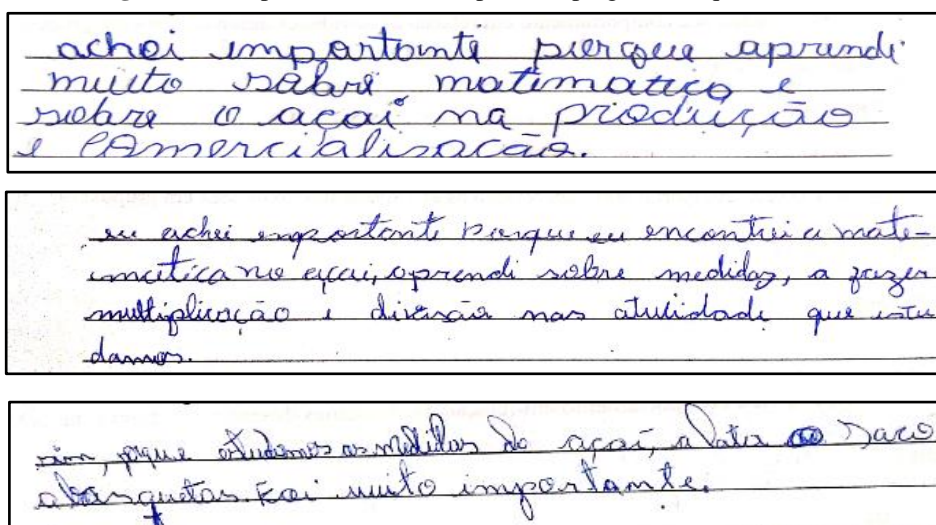 achei importante porque aprendi
muito sobre matematica e
sobre o açaí na produção
e comercialisação.
eu achei importante porque eu encontrei a mate-
imática no açai, aprendi sobre medidas, a fazer
multiplicação e divisão nas atulidade que estu
damos.
sim, porque estudamos as medidas do açaí, a lata o saco
a basquetas foi muito importante.